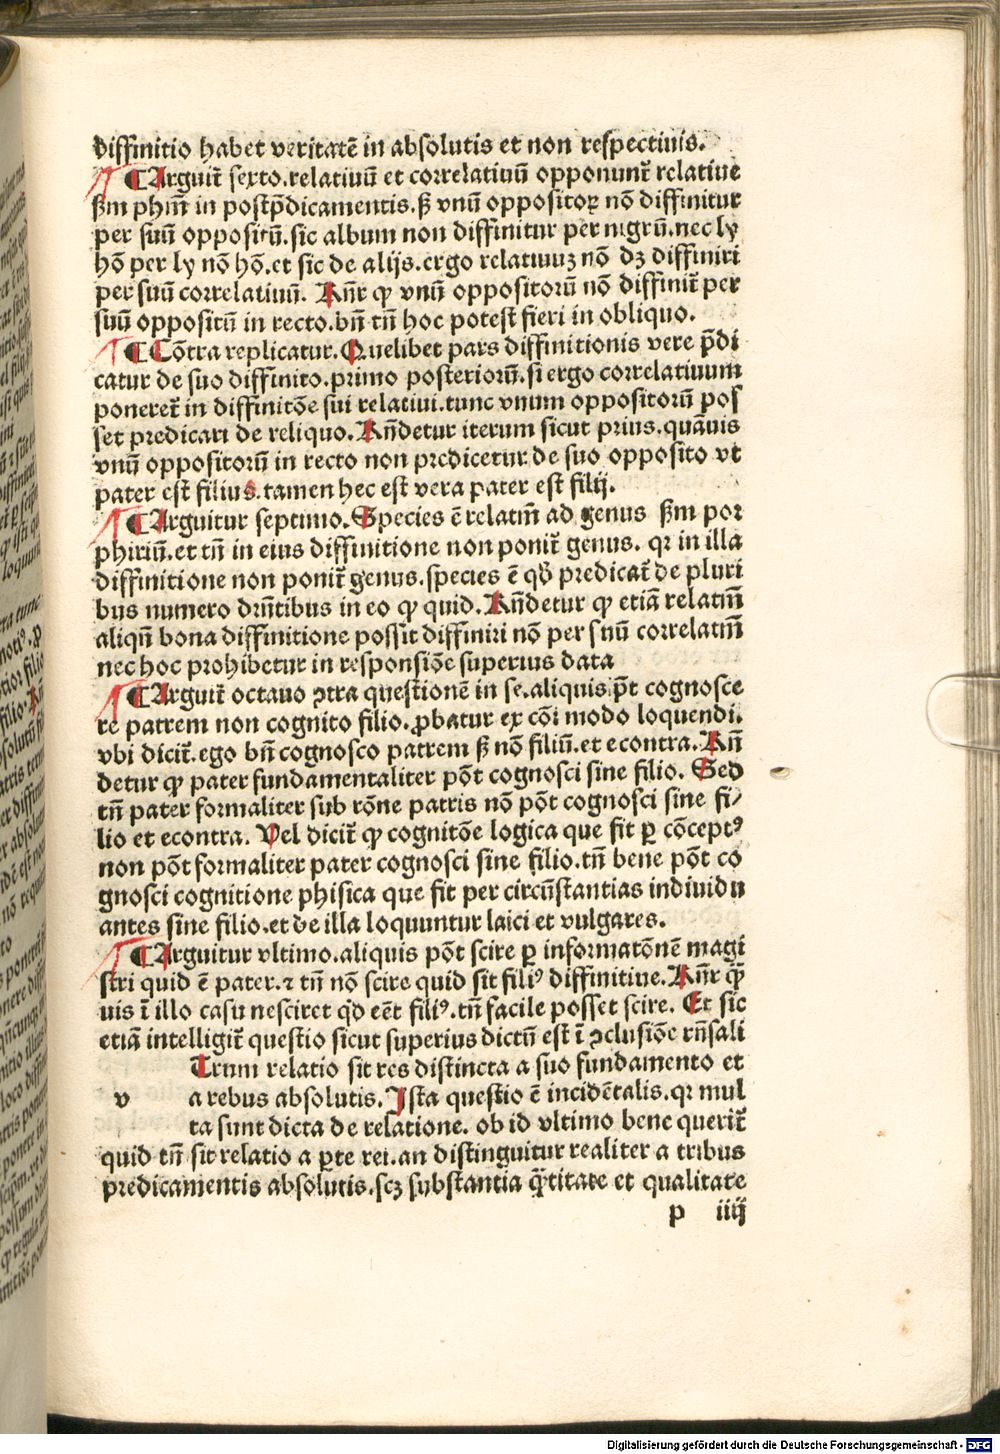 diffinitio habet veritatē in absolutis et non respectiuis.
¶ Arguit̄ sexto.relatiuū et correlatiuū opponunt̄ relatiue
ẜm phm̄ in postp̄dicamentis.ẞ vnū oppositoꝝ nō diffinitur
per suū oppositū.sic album non diffinitur per nigrū.nec ly
hō per ly nō hō.et sic de alijs.ergo relatiuuꝫ nō dꝫ diffiniri
per suū correlatiuū. Rn̄r ꝙ vnū oppositorū nō diffinit̄ per
suū oppositū in recto.bn̄ tn̄ hoc potest fieri in obliquo.
¶ Cōtra replicatur.Quelibet pars diffinitionis vere p̄di
catur de suo diffinito.primo posteriorū.si ergo correlatiuum
poneret̄ in diffinitōe sui relatiui.tunc vnum oppositorū pos
set predicari de reliquo.Rn̄detur iterum sicut prius.quāuis
vnū oppositorū in recto non predicetur de suo opposito vt
pater est filius.tamen hec est vera pater est filij.
¶ Arguitur septimo.Species ē relatm̄ ad genus ẜm por
phiriū.et tn̄ in eius diffinitione non ponit̄ genus. qꝛ in illa
diffinitione non ponit̄ genus.species ē qď predicat̄ de pluri
bus numero drn̄tibus in eo ꝙ quid.Rn̄detur ꝙ etiā relatm̄
aliqn̄ bona diffinitione possit diffiniri nō per suū correlatm̄
nec hoc prohibetur in responsiōe superius data
¶ Arguit̄ octauo ꝯtra questionē in se.aliquis p̄t cognosce
re patrem non cognito filio.ꝓbatur ex cōi modo loquendi.
vbi dicit̄.ego bn̄ cognosco patrem ẞ nō filiū.et econtra.Rn̄
detur ꝙ pater fundamentaliter pōt cognosci sine filio. Sed
tn̄ pater formaliter sub rōne patris nō pōt cognosci sine fi⸗
lio et econtra. Vel dicit̄ ꝙ cognitōe logica que fit ꝑ cōceptꝰ
non pōt formaliter pater cognosci sine filio.tn̄ bene pōt co
gnosci cognitione phisica que fit per circūstantias indiuidu
antes sine filio.et de illa loquuntur laici et vulgares.
¶ Arguitur vltimo.aliquis pōt scire ꝑ informatōnē magi
stri quid ē pater.⁊ tn̄ nō scire quid sit filiꝰ diffinitiue.Rn̄r ꝙ̄
uis ī illo casu nesciret qd̄ eēt filiꝰ.tn̄ facile posset scire. Et sic
etiā intelligit̄ questio sicut superius dictū est ī ꝯclusiōe rn̄sali
Trum relatio sit res distincta a suo fundamento et
v a rebus absolutis.Ista questio ē incidētalis.qꝛ mul
ta sunt dicta de relatione. ob id vltimo bene querit̄
quid tn̄ sit relatio a ꝑte rei.an distinguitur realiter a tribus
predicamentis absolutis.scꝫ substantia q̄titate et qualitate
p iiij
Digitalisierung gefördert durch die Deutsche Forschungsgemeinschaft - DFG